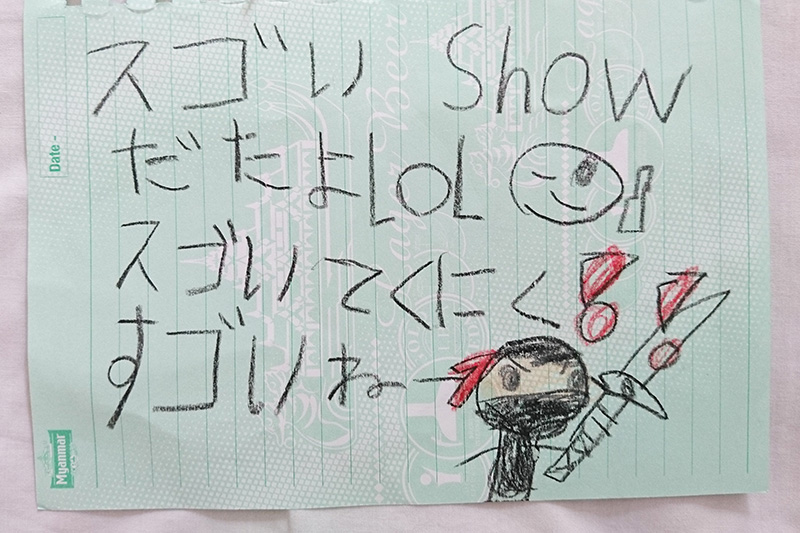 スゴい Show
だたよLOL
スゴいてくにく!!
すゴいねー
Date -
Myanmar
Lager Beer